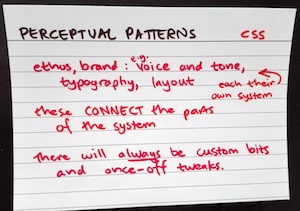 PERCEPTUAL PATTERNS CSS
e.g.
ethus, brand: voice and tone,
typography, layout
each their
own system
these CONNECT the parts
of the system
There will always be custom bits
and once-off tweaks.